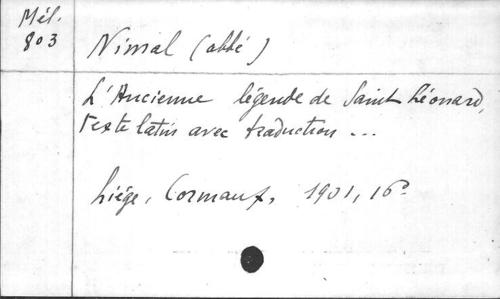 Mél.
803
Nimal (abbé)
L'Ancienne légende de Saint Léonard,
texte latin avec traduction ...
Liége, Cormaux, 1901, 16°